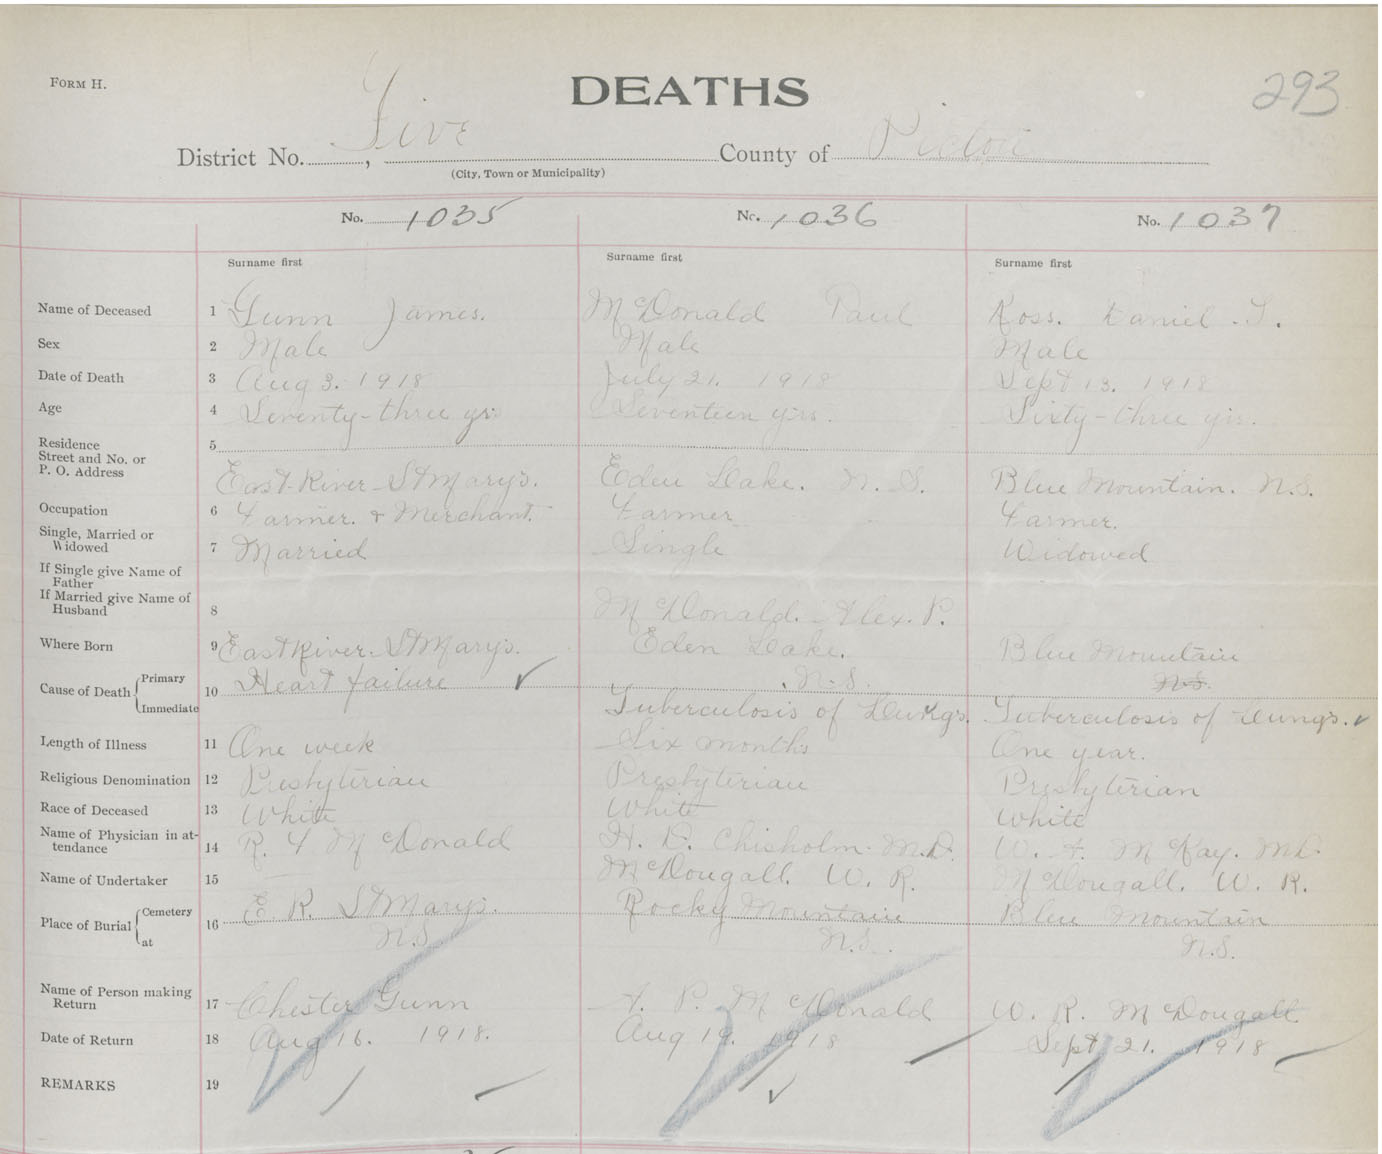 FORM H.
DEATHS
293
District No. , Five County of Pictou
(City, Town or Municipality)
No. 1035 No. 1036 No. 1037
Surname first Surname first Surname first
Name of Deceased 1 Gunn James. McDonald Paul Ross. Daniel. T.
Sex 2 Male Male Male
Date of Death 3 Aug 3. 1918 July 21. 1918 Sept 13. 1918
Age 4 Seventy-three yrs. Seventeen yrs. Sixty-three yrs.
Residence 5
Street and No. or
P. O. Address East-River-St Mary's. Eden Lake. N. S. Blue Mountain. N.S.
Occupation 6 Farmer. & Merchant. Farmer Farmer.
Single, Married or
Widowed 7 Married Single Widowed
If Single give Name of
Father
If Married give Name of
Husband 8 McDonald. Alex. P.
Where Born 9 East River-St Mary's. Eden Lake. Blue Mountain
Cause of Death Primary 10 Heart failure ✓ N.S. N.S.
Immediate Tuberculosis of Lungs. Tuberculosis of Lungs. ✓
Length of Illness 11 One week Six months One year.
Religious Denomination 12 Presbyterian Presbyterian Presbyterian
Race of Deceased 13 White White White
Name of Physician in at-
tendance 14 R. F McDonald H. D. Chisholm. M.D. W. A. McKay. MD
Name of Undertaker 15 McDougall. W. R. McDougall. W. R.
Place of Burial Cemetery 16 E. R. St Mary's. Rocky Mountain Blue Mountain
at N.S. N.S. N.S.
Name of Person making
Return 17 Chester Gunn A. P. McDonald W. R. McDougall
Date of Return 18 Aug 16. 1918. Aug 19. 1918 Sept 21. 1918
REMARKS 19 ✓